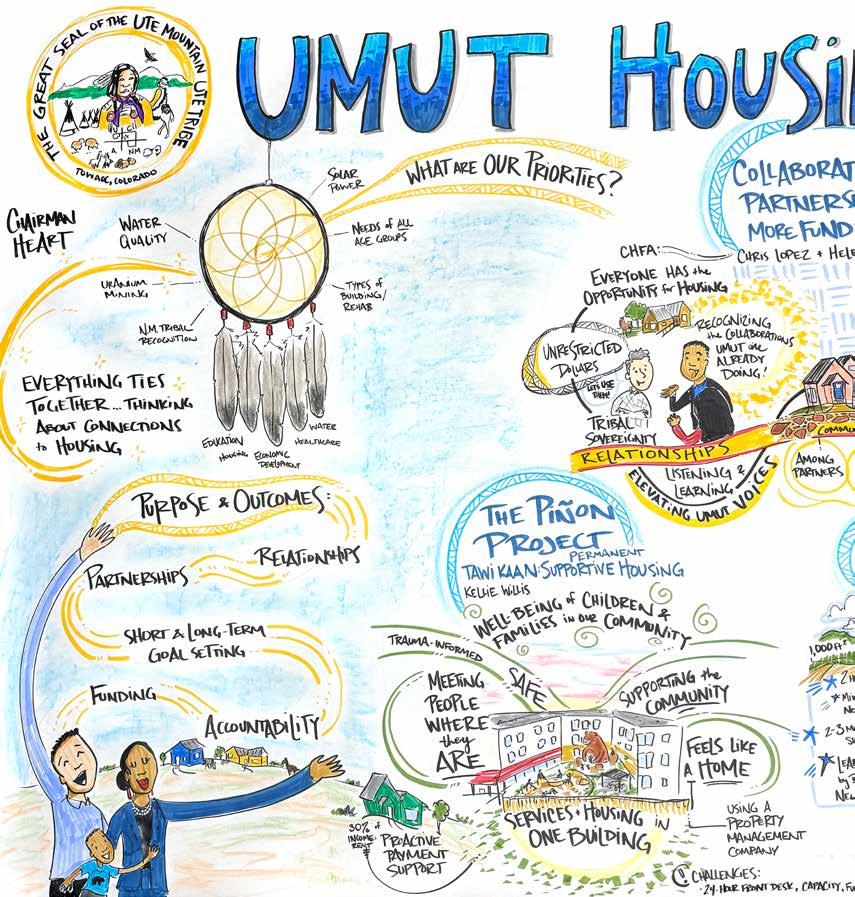 THE GREAT SEAL OF THE UTE MOUNTAIN UTE TRIBE
TOWAOC, COLORADO
UMUT HOUSI
CHAIRMAN
HEART
WHAT ARE OUR PRIORITIES?
SOLAR
POWER
WATER
QUALITY
NEEDS OF ALL
AGE GROUPS
URANIUM
MINING
TYPES OF
BUILDING/
REHAB
NM TRIBAL
RECOGNITION
EVERYTHING TIES
TOGETHER... THINKING
ABOUT CONNECTIONS
to HOUSING
EDUCATION
HOUSING
ECONOMIC
DEVELOPMENT
WATER
HEALTHCARE
COLLABORAT
PARTNERS
MORE FUND
CHRIS LOPEZ + HELE
CHFA:
EVERYONE HAS the
OPPORTUNITY for HOUSING
UNRESTRICTED
DOLLARS
LET'S USE
THEM!
RECOGNIZING
the COLLABORATIONS
UMUT are
ALREADY
DOING!
TRIBAL
SOVEREIGNTY
RELATIONSHIPS
COMMU
LISTENING &
LEARNING
ELEVATING UMUT VOICES
AMONG
PARTNERS
PURPOSE & OUTCOMES:
RELATIONSHIPS
PARTNERSHIPS
SHORT & LONG-TERM
GOAL SETTING
FUNDING
ACCOUNTABILITY
THE PIÑON
PROJECT
PERMANENT
TAWI KAAN: SUPPORTIVE HOUSING
KELLIE WILLIS
WELL-BEING of CHILDREN &
FAMILIES in OUR COMMUNITY
TRAUMA-INFORMED
SAFE
MEETING
PEOPLE
WHERE
they
ARE
SUPPORTING the
COMMUNITY
FEELS LIKE
A HOME
SERVICES + HOUSING IN
ONE BUILDING
USING A
PROPERTY
MANAGEMENT
COMPANY
30% of
INCOME:
RENT
PROACTIVE
PAYMENT
SUPPORT
CHALLENGES:
· 24-HOUR FRONT DESK, CAPACITY, FU
1,000 FT²
2-3 M